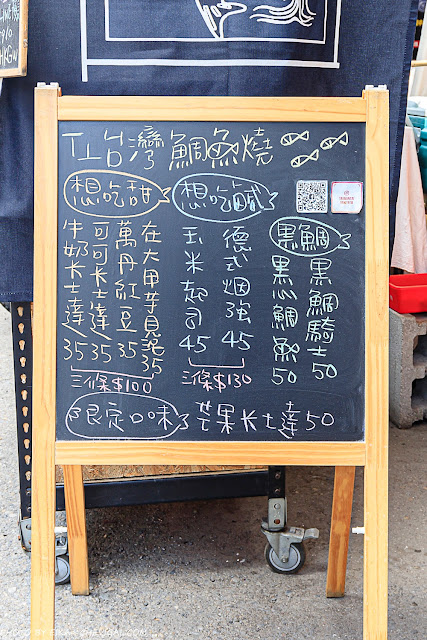 LINE
HKGN
TW台灣鯛魚燒
想吃甜
想吃鹹
黑鯛
牛奶卡士達 35
可可卡士達 35
萬丹紅豆 35
在大甲芋見泥 35
三條$100
玉米起司 45
德式烟強 45
三條$130
黑心鯛魚 50
黑鯛騎士 50
限定口味 芒果卡士達 50